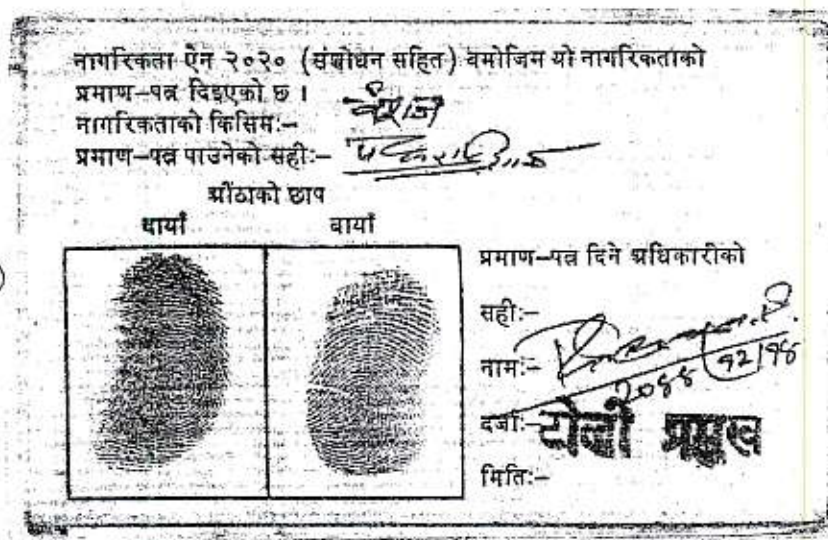 नागरिकता ऐन २०२० (संशोधन सहित) बमोजिम यो नागरिकताको
प्रमाण-पत्र दिइएको छ ।
नागरिकताको किसिम:- वंशज
प्रमाण-पत्र पाउनेको सही:-
औंठाको छाप
दायाँ बायाँ
प्रमाण-पत्र दिने अधिकारीको
सही:-
नाम:-
दर्जा:- टोली प्रमुख
मिति:-